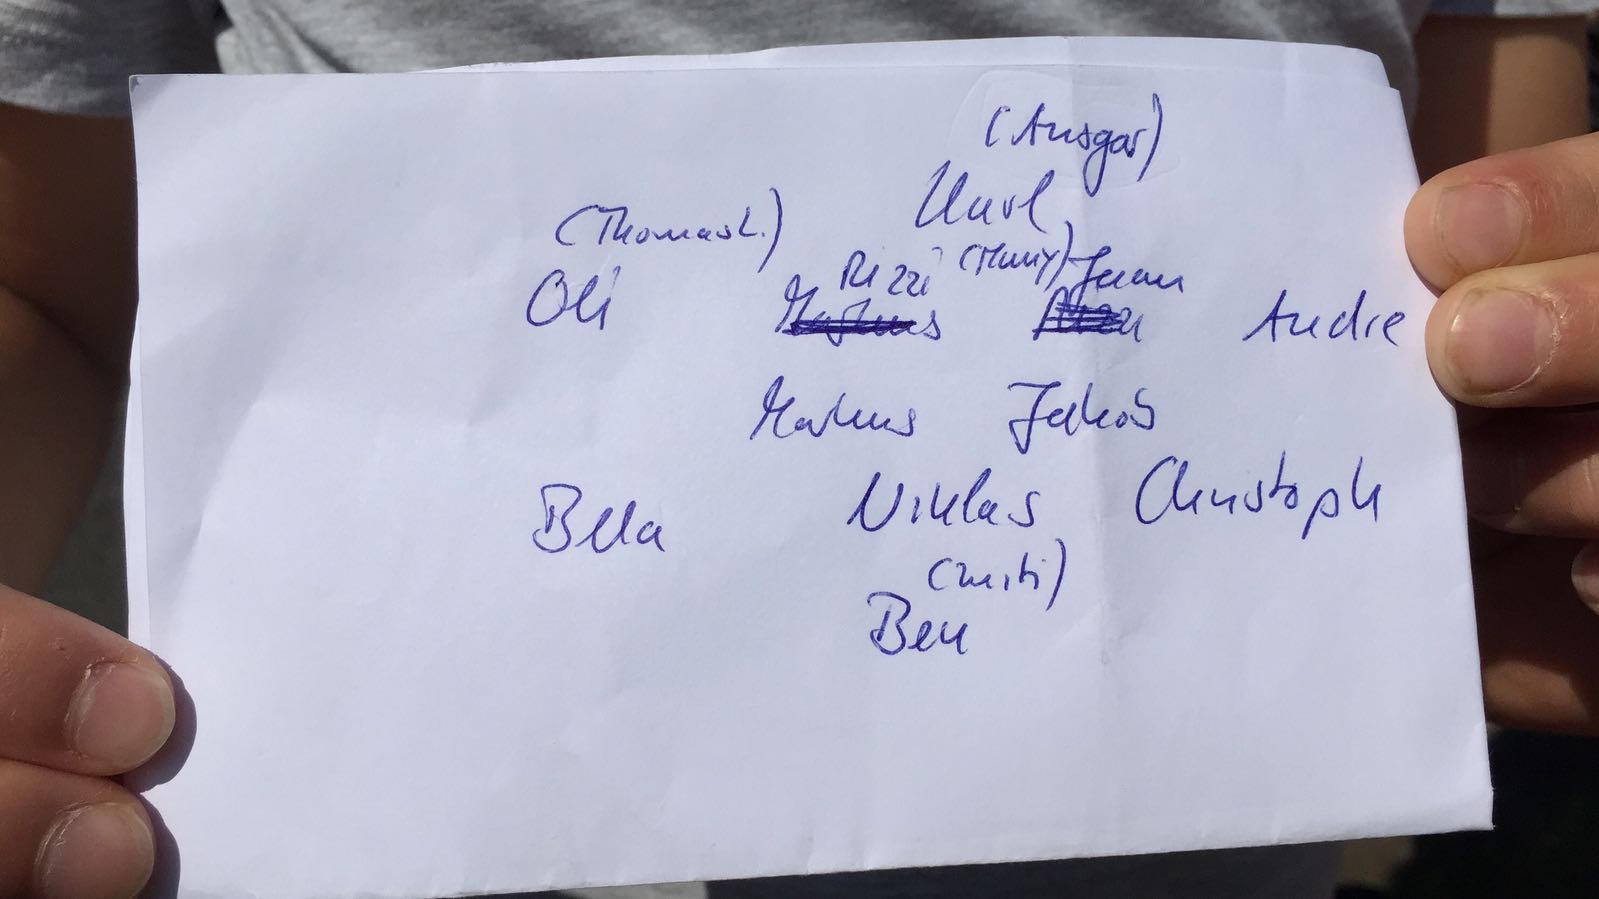 (Ansgar)
(Thomas L.)
Rizzi
Oli Andre
Markus Jakob
Bela Niklas Christoph
(Miti)
Ben